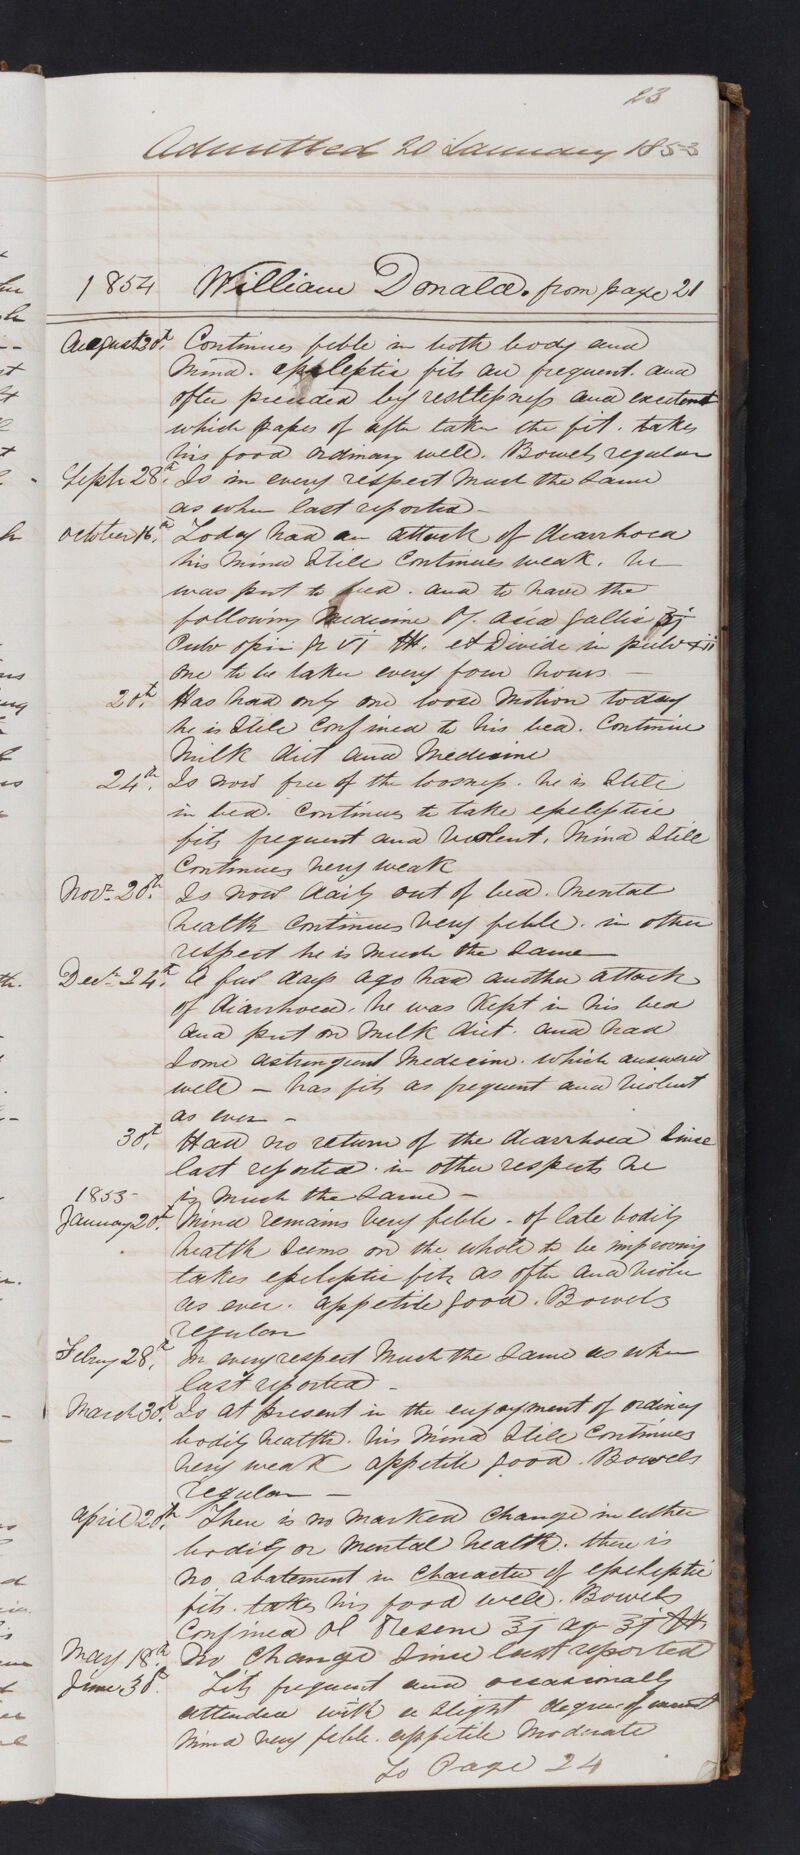 23
Admitted 20 January 1853
1854 William Donald. from page 21
August 30th. Continues feble in both body and
Mind. epileptic fits are frequent. and
often preceded by restlessness and excitment
which passes of after taken the fit. takes
his food ordinary well. Bowels regular
Septr 28th. Is in every respect much the same
as when last reported -
October 16th. Today had an attack of diarrhoea
his mind Still Continues weak. he
was put to bed. and to have the
following Medicine acid gallic ʒj
Pulv opii gr vi et Divide in pulv xii
one to be taken every four hours -
20th. Has had only one loose Motion today
he is Still Confined to his bed. Continue
Milk diet and Medicine
24th. Is now free of the loosness. he is Still
in bed. Continues to take epileptic
fits frequent and Violent. Mind Still
Continues very weak
Novr. 20th. Is now daily out of bed. Mental
health Continues very feble. in other
respect he is much the same
Decr. 24th. A few days ago had another attack
of diarrhoea. he was Kept in his bed
and put on Milk diet. and had
Some astringent Medecine. which answered
well - has fits as frequent and Violent
as ever -
30th. Had no return of the diarrhoea Since
last reported. in other respects he
is Much the Same -
1855
January 20th. Mind remains very feble - of late bodily
health Seems on the whole to be improving
takes epileptic fits as often and Violent
as ever. appetite good. Bowels
regular
Febury 28th. In every respect Much the Same as when
last reported -
March 30th. Is at present in the enjoyment of ordinary
bodily health. his Mind Still Continues
very weak appetite good. Bowels
regular -
April 20th. There is no marked Change in either
bodily or mental health. there is
no abatement in Character of epileptic
fits. takes his food well. Bowels
Confined Ol Ricini ʒj ʒj
May 18th. No Change Since last reported
June 30th. Fits frequent and occasionally
attended with a slight degree of
Mind very feble. appetite Moderate
To Page 24